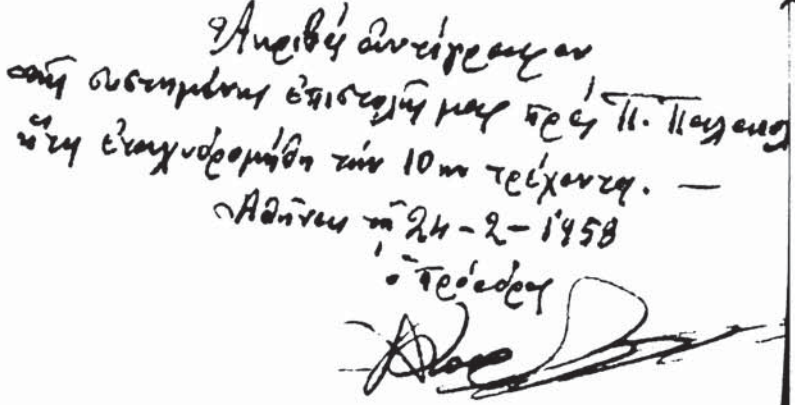 Ἀκριβές ἀντίγραφον
τῆς συστημένης ἐπιστολῆς μας πρός Π.
ἥτις ἐταχυδρομήθη τήν 10ην τρέχοντος. —
Ἀθῆναι τῇ 24-2-1958
ὁ Πρόεδρος